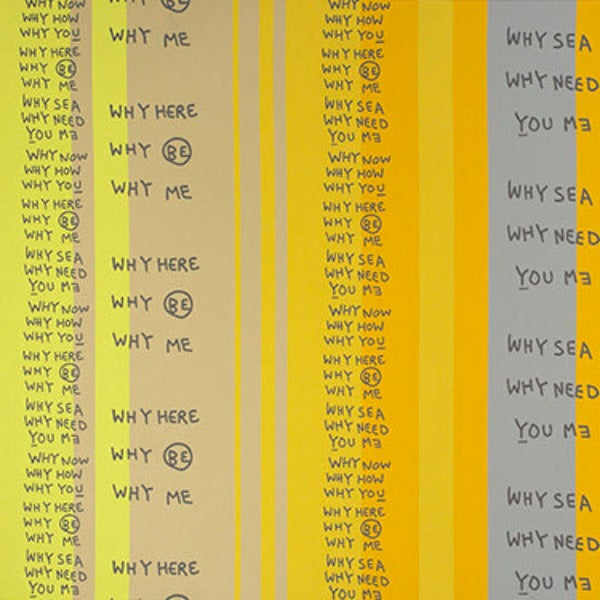 WHY NOW
WHY HOW
WHY YOU
WHY HERE
WHY BE
WHY ME
WHY SEA
WHY NEED
YOU MƎ
WHY NOW
WHY HOW
WHY YOU
WHY HERE
WHY BE
WHY ME
WHY SEA
WHY NEED
YOU MƎ
WHY NOW
WHY HOW
WHY YOU
WHY HERE
WHY BE
WHY ME
WHY SEA
WHY NEED
YOU MƎ
WHY NOW
WHY HOW
WHY YOU
WHY HERE
WHY BE
WHY ME
WHY SEA
WHY NEED
YOU MƎ
WHY BE
WHY ME
WHY HERE
WHY BE
WHY ME
WHY HERE
WHY BE
WHY ME
WHY HERE
WHY BE
WHY ME
WHY HERE
WHY BE
WHY NOW
WHY HOW
WHY YOU
WHY HERE
WHY BE
WHY ME
WHY SEA
WHY NEED
YOU MƎ
WHY NOW
WHY HOW
WHY YOU
WHY HERE
WHY BE
WHY ME
WHY SEA
WHY NEED
YOU MƎ
WHY NOW
WHY HOW
WHY YOU
WHY HERE
WHY BE
WHY ME
WHY SEA
WHY NEED
YOU MƎ
WHY NOW
WHY HOW
WHY YOU
WHY HERE
WHY BE
WHY ME
WHY SEA
WHY NEED
YOU MƎ
WHY SEA
WHY NEED
YOU MƎ
WHY SEA
WHY NEED
YOU MƎ
WHY SEA
WHY NEED
YOU MƎ
WHY SEA
WHY NEED
YOU MƎ